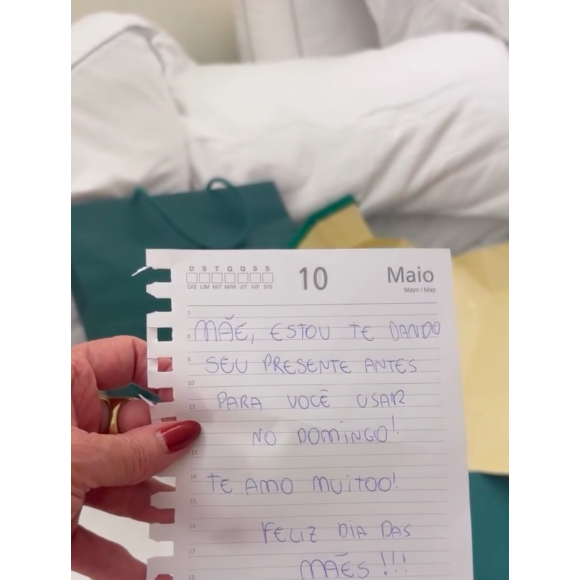 D S T Q Q S S
D/S L/M M/T M/W J/T V/F S/S
10
Maio
Mayo / May
7
8 MÃE, ESTOU TE DANDO
9 SEU PRESENTE ANTES
10
11 PARA VOCÊ USAR
NO DOMINGO!
13
14 TE AMO MUITOO!
15
16 FELIZ DIA DAS
17
18 MÃES!!!